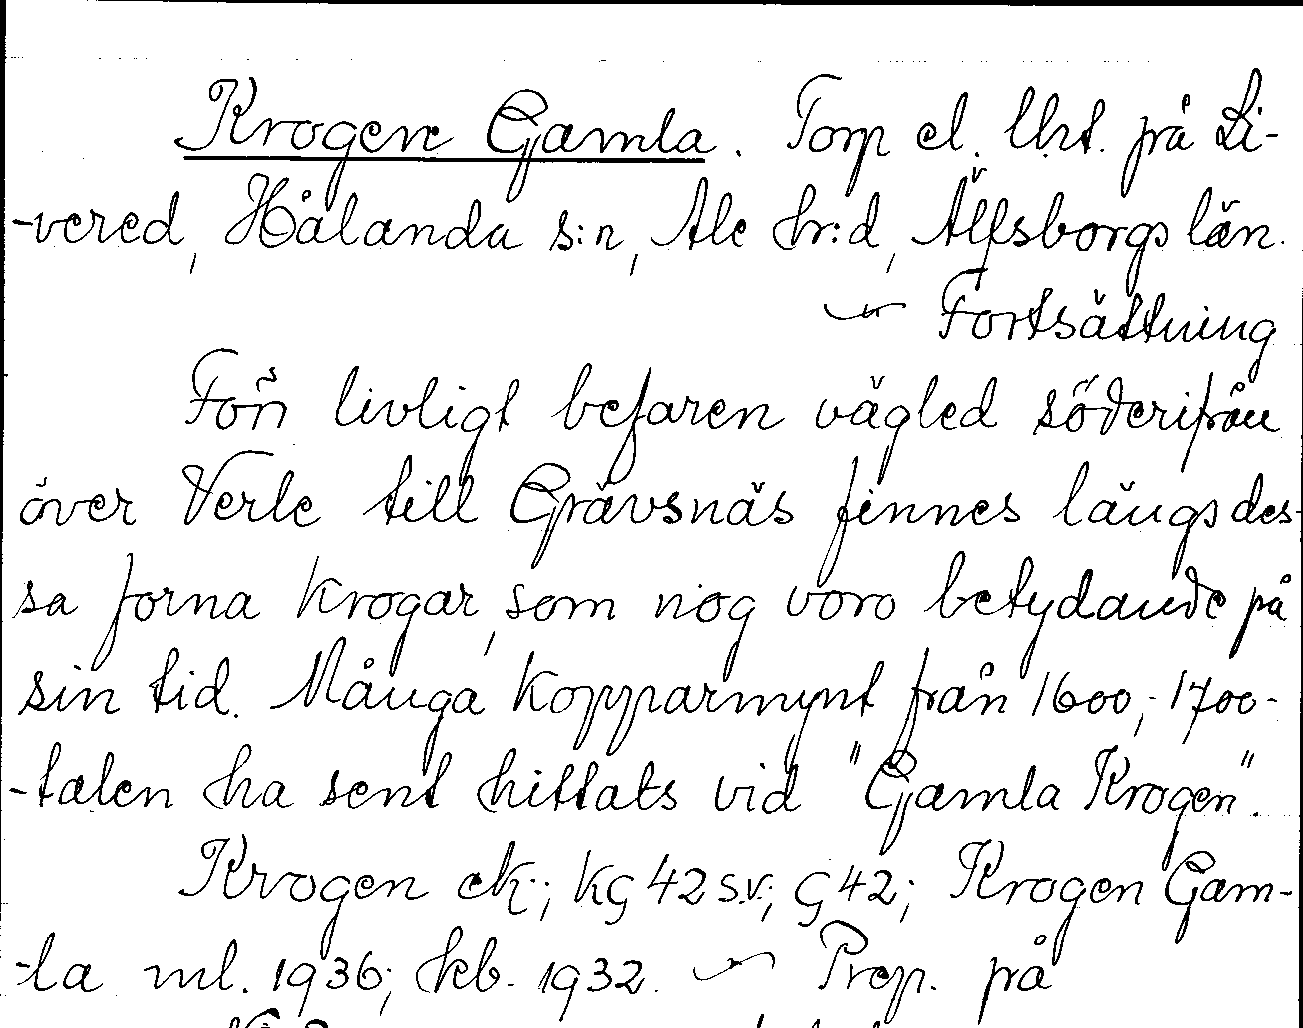 Krogen Gamla. Torp el. lht. på Li-
-vered, Hålanda s:n, Ale hr:d, Älfsborgs län.
~ Fortsättning
Förr livligt befaren vägled söderifrån
över Verle till Grävsnäs finnes längs des-
sa forna krogar, som nog voro betydande på
sin tid. Många kopparmynt från 1600,- 1700-
-talen ha sent hittats vid "Gamla Krogen".
Krogen ek; KG 42 s.v.; G 42; Krogen Gam-
-la ml. 1936; hkb. 1932. ~ Prep. på